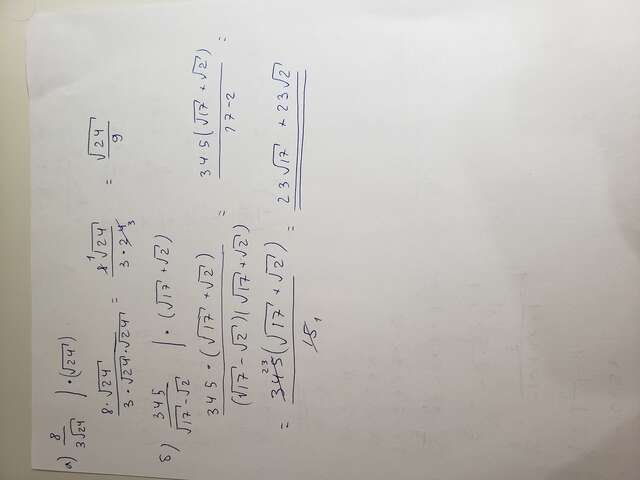 а) 8/(3√24) | · (√24)
(8 · √24)/(3 · √24 · √24) = (8̶ ¹√24)/(3 · 2̶4̶ ₃) = √24/9
б) 345/(√17 - √2) | · (√17 + √2)
(345 · (√17 + √2))/((√17 - √2)(√17 + √2)) = (345(√17 + √2))/(17-2) =
= (3̶4̶5̶ ²³(√17 + √2))/(1̶5̶ ₁) = 23√17 + 23√2